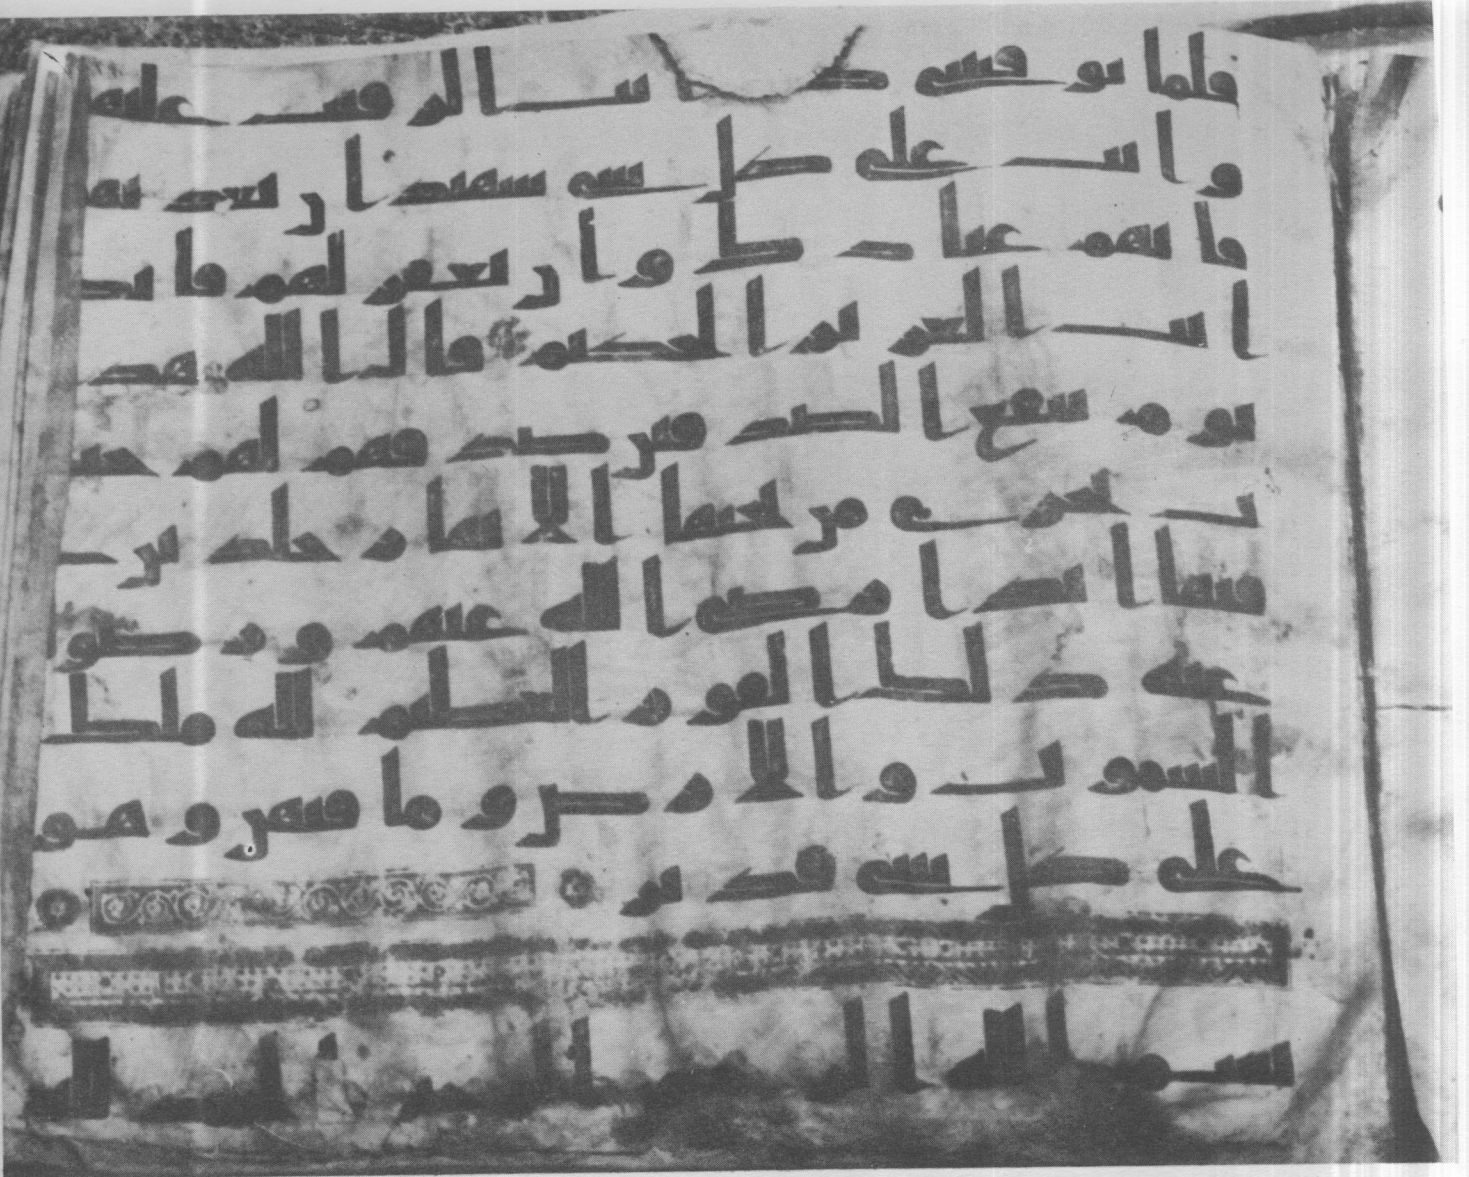 فلما توفيتني كنت انت الرقيب عليهم
وانت على كل شى شهيد ان تعذبهم
فانهم عبادك وان تغفر لهم فانك
انت العزيز الحكيم قال الله هذا
يوم ينفع الصدقين صدقهم لهم جنت
تجرى من تحتها الانهر خلدين
فيها ابدا رضى الله عنهم ورضوا
عنه ذلك الفوز العظيم لله ملك
السموت والارض وما فيهن وهو
على كل شى قدير
بسم الله